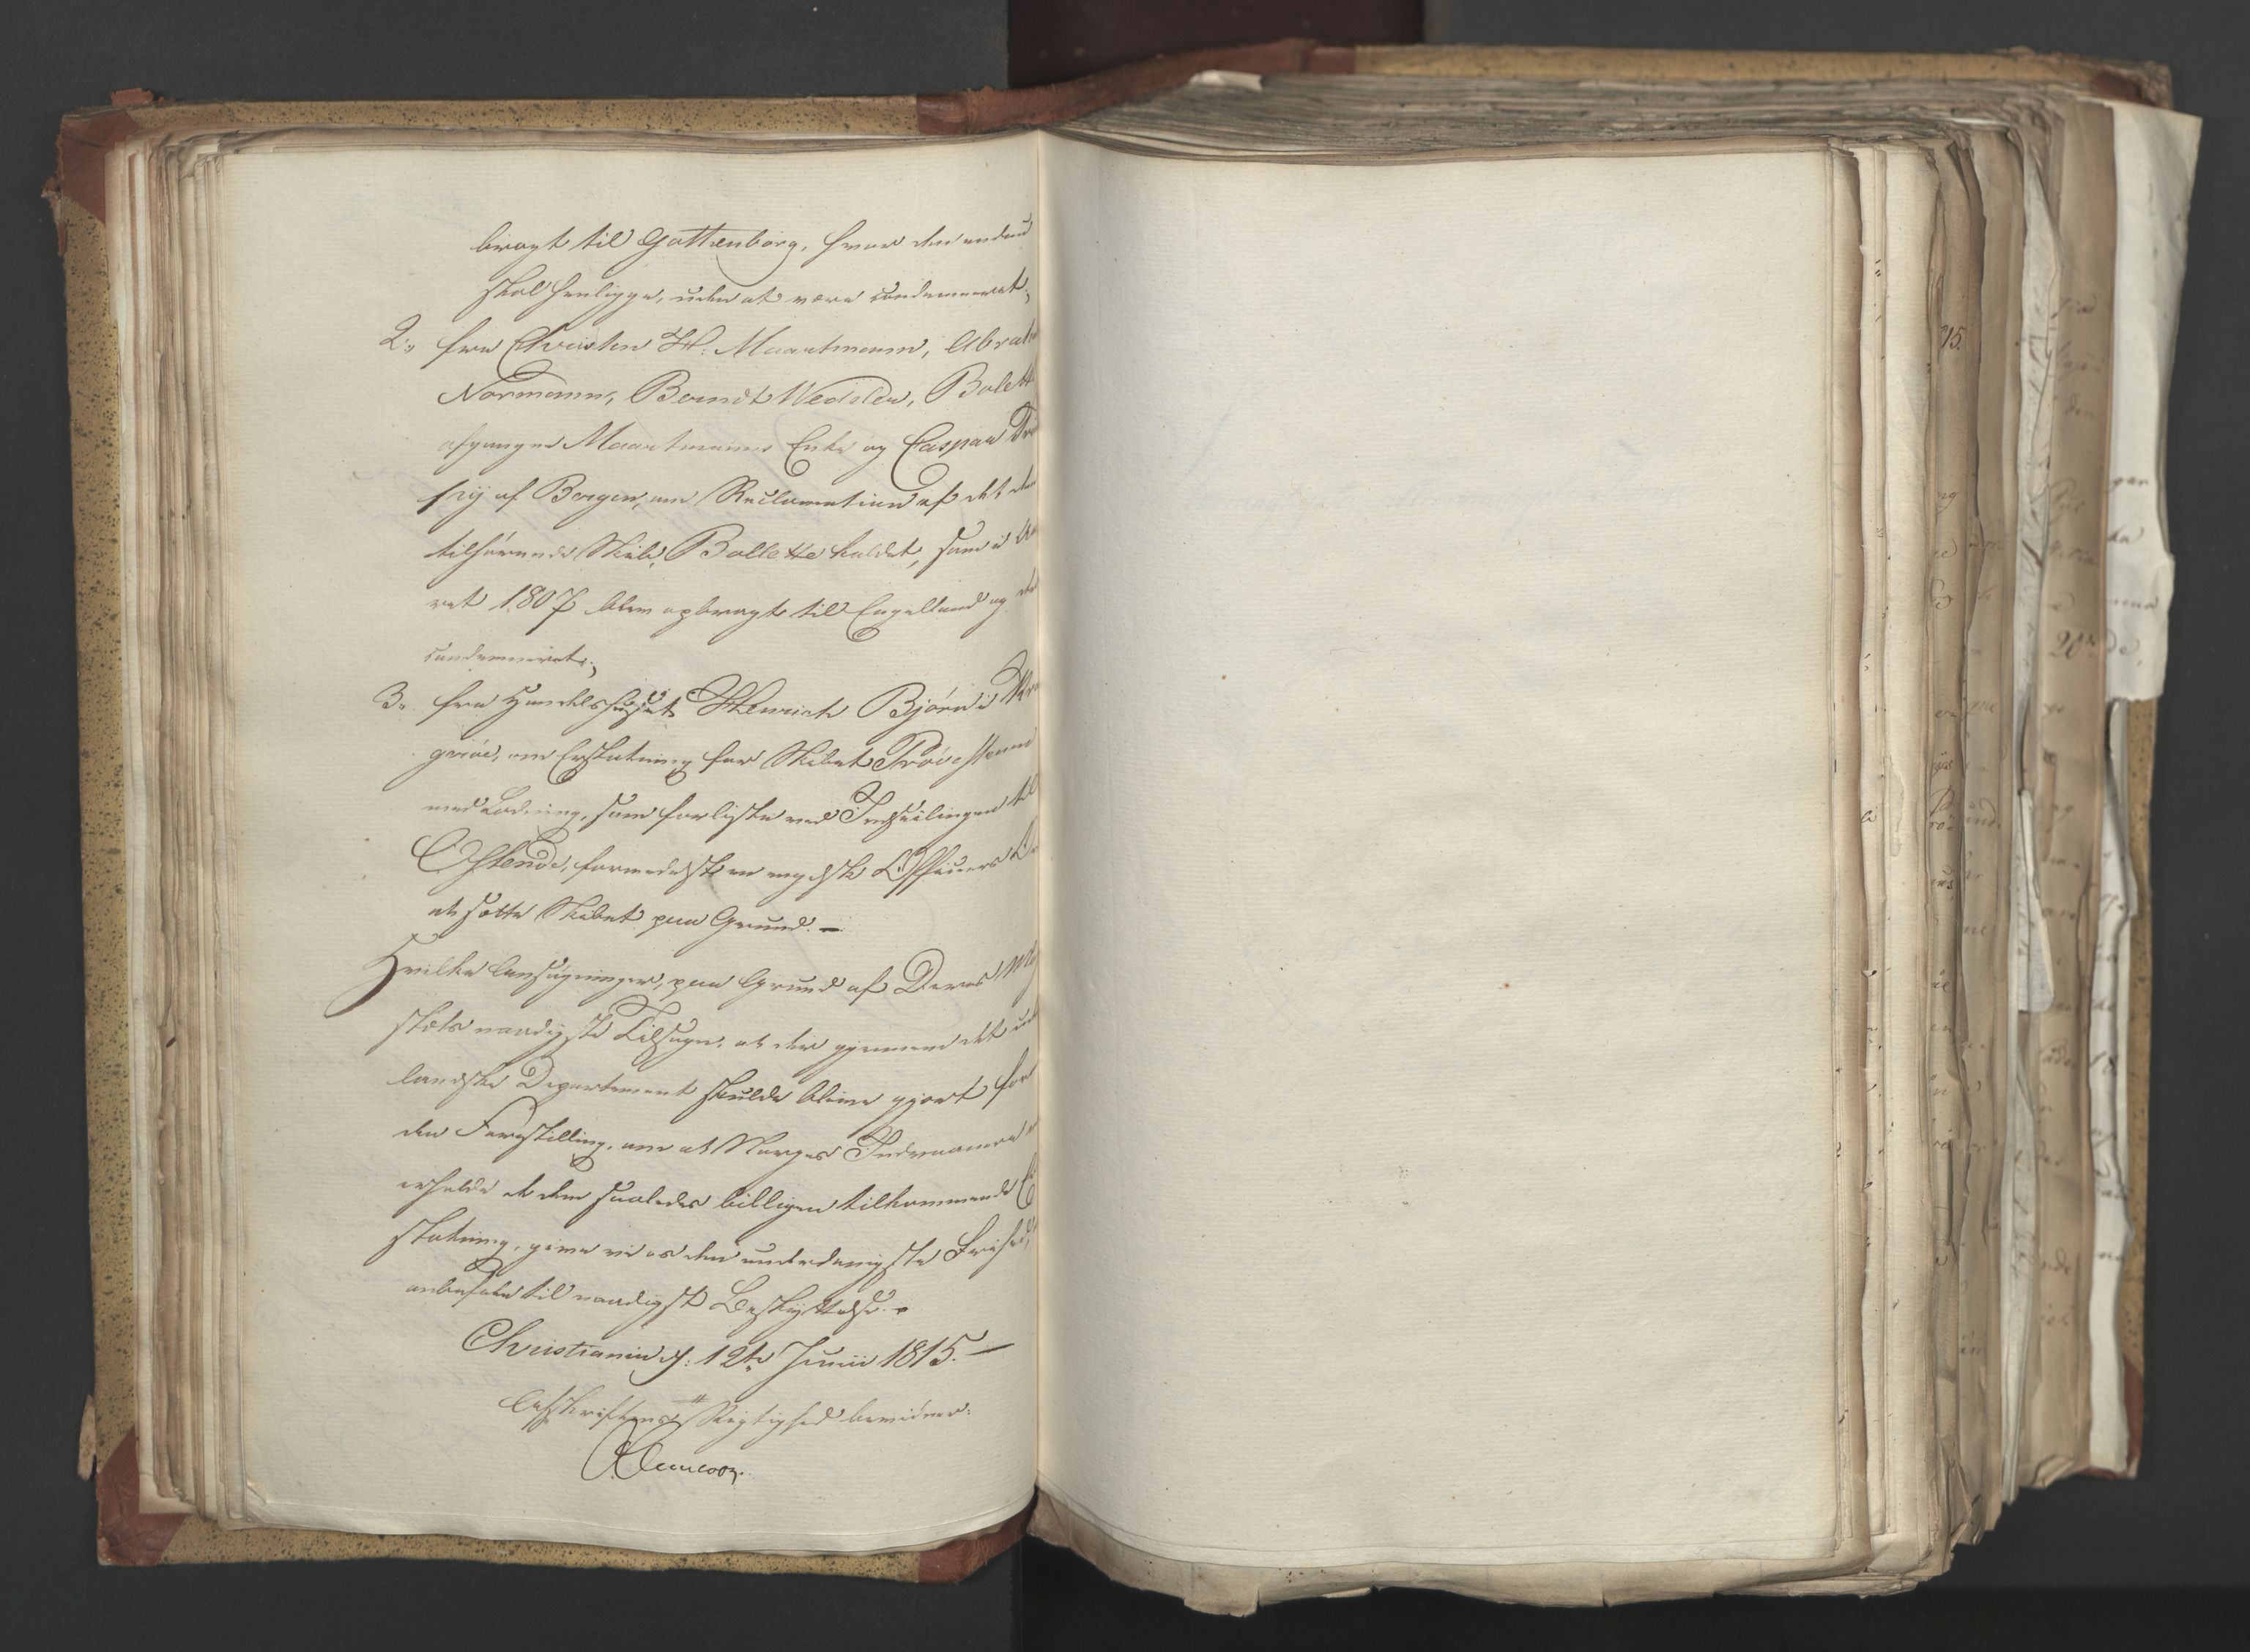 bragt til Gottenborg, hvor den endnu
skal henligge, uden at være condemneret;
2., fra Christen H: Maartmann, Abrah
Normann, Berndt Wedeler, Bolett
afgangne Maartmanns Enke og Caspar
af Bergen, om Reclamation af det dem
tilhørende Skib, Bollette kaldet, som i Aa
ret 1807 blev opbragt til Engelland og der
condemneret;
3., fra Handelshuset Henrich Bjørn i Kra
gerøe, om Erstatning for Skibet Prøvestenen
med Ladning, som forliste ved Indseilingen til
Ostende, formedelst en engelsk Officeers
at sætte Skibet paa Grund. –
Hvilke Ansøgninger, paa Grund af Deres Maj
stæts naadigste Tilsagn, at der gjennem det uden
landske Departement skulde blive gjort for
den Forestilling, om at Norges Indvaanere
erholde den dem saaledes billigen tilkommende Er
statning, give vi os den underdanigste Frihed,
anbefale til naadigst Beskyttelse. –
Christiania d: 12te Junii 1815. –
Afskriftens Rigtighed bevidner: